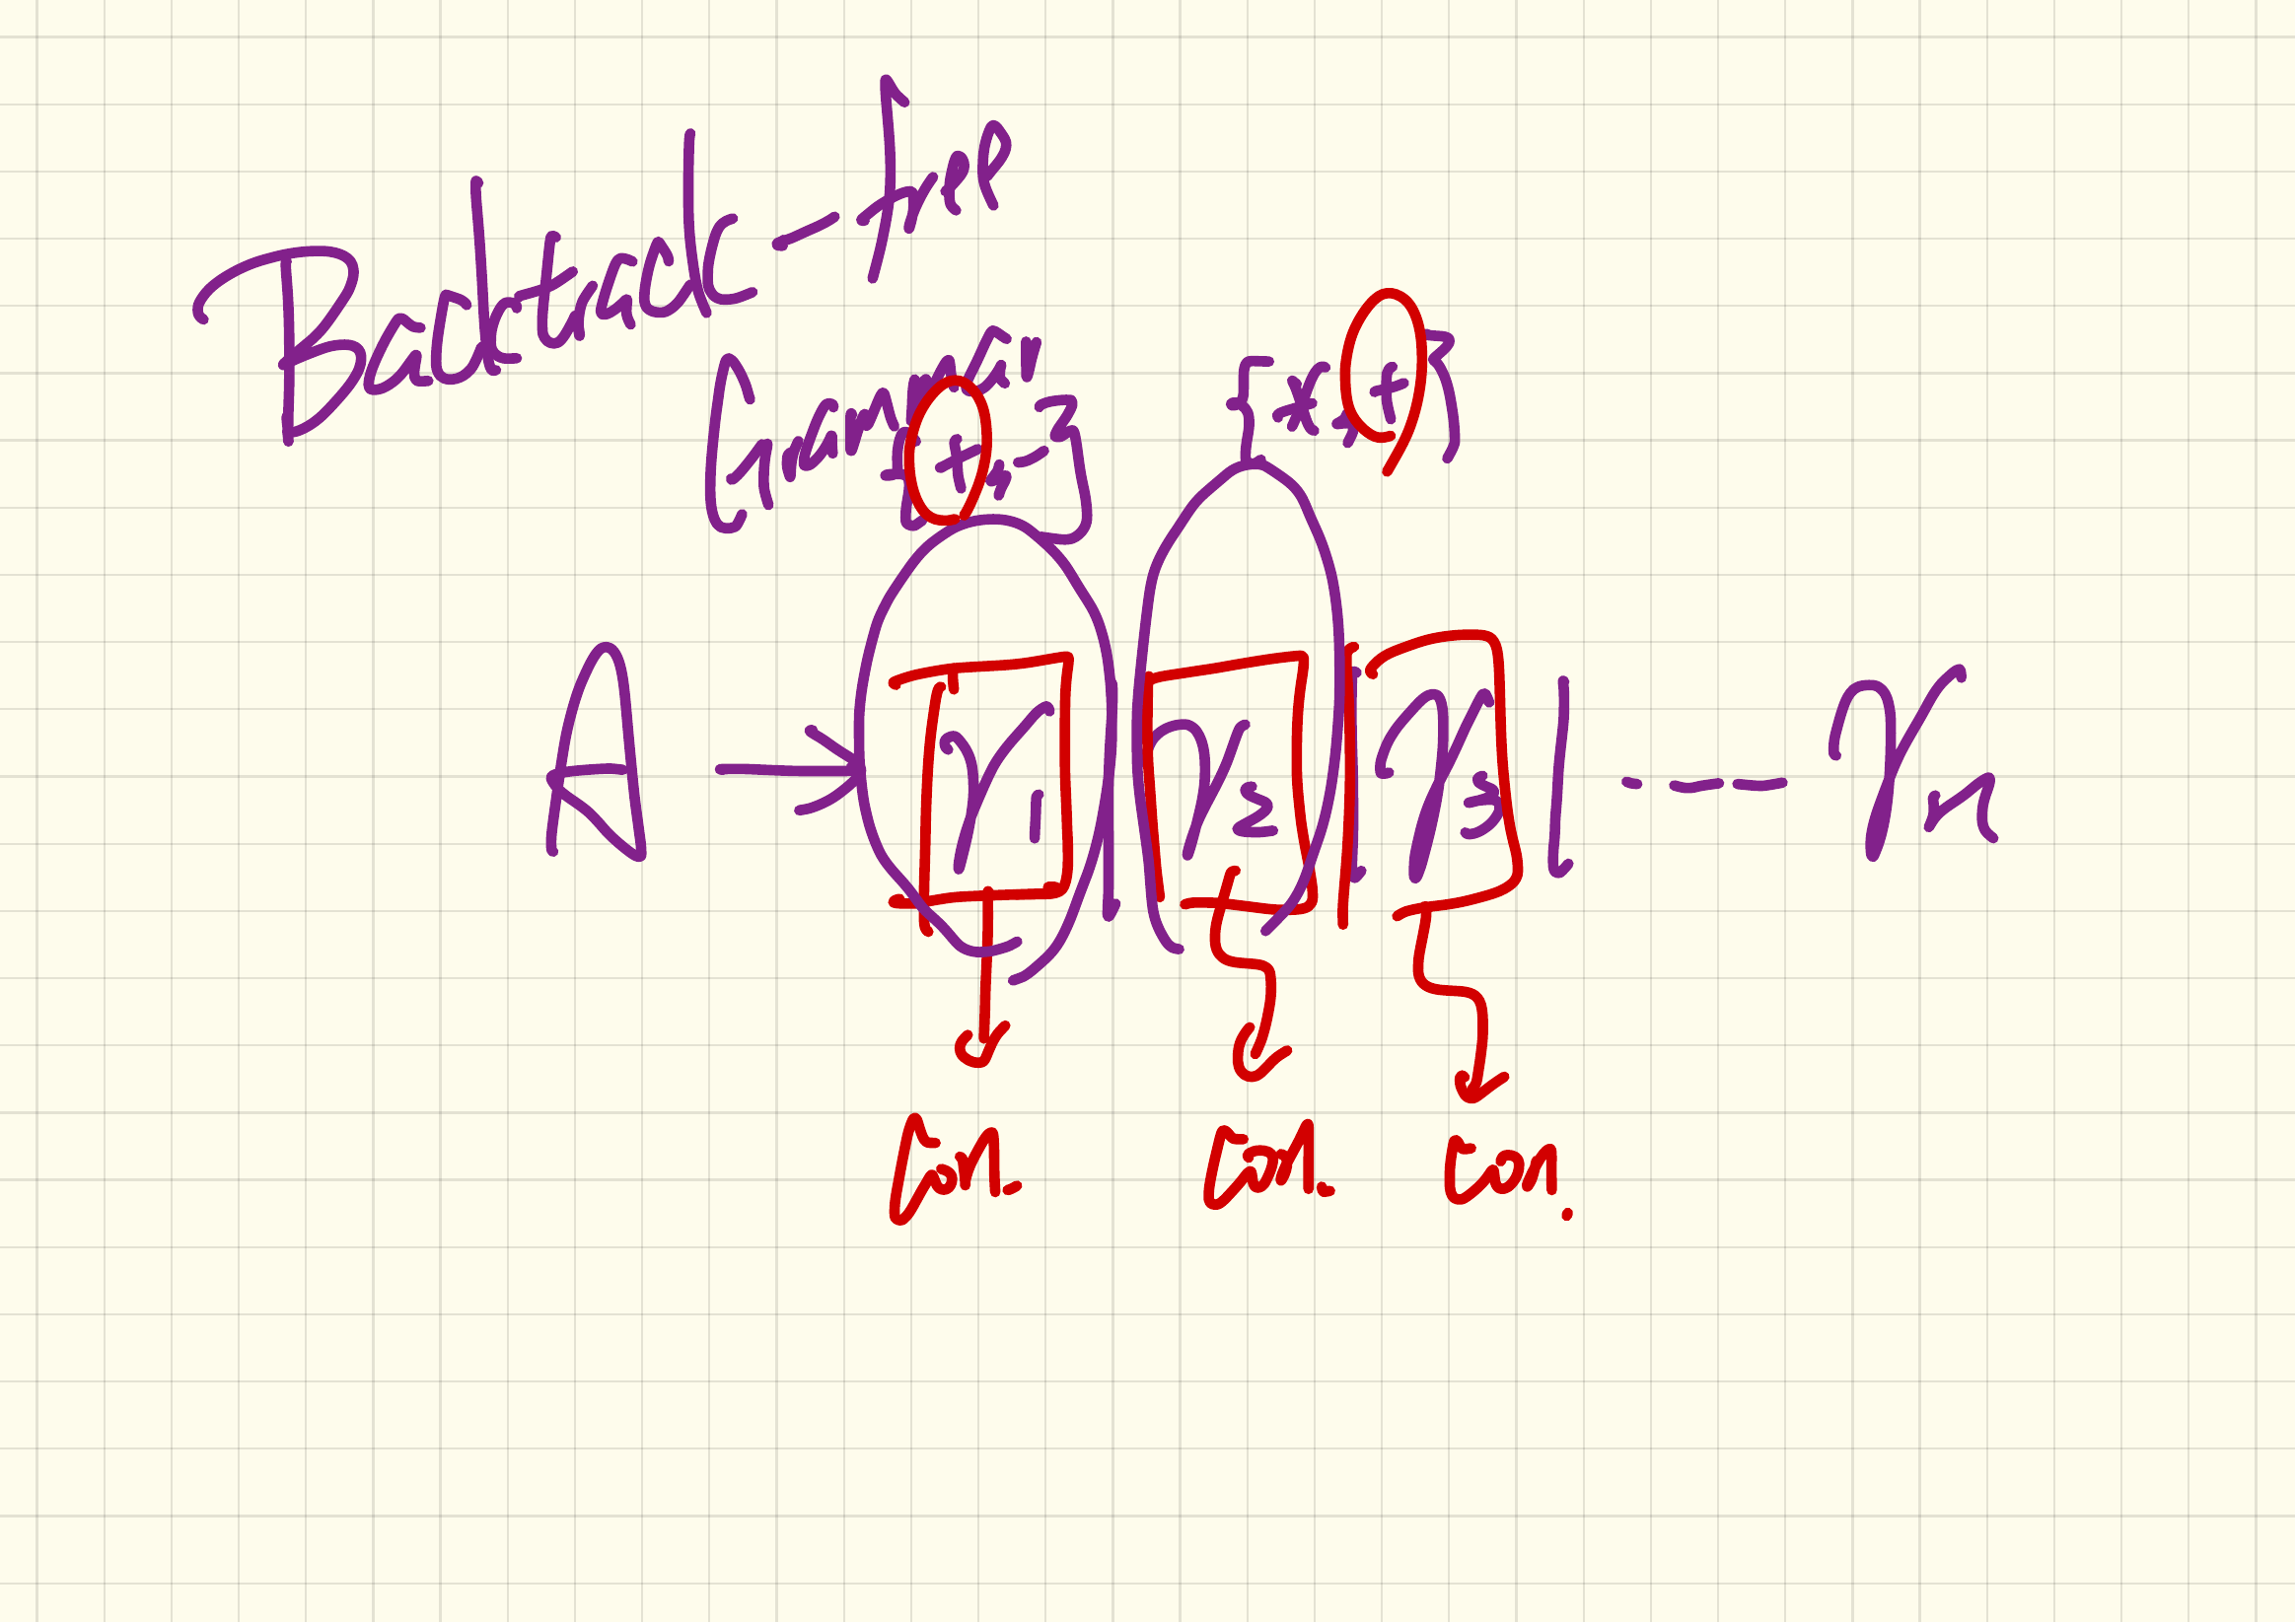 Backtrack-free
Grammar
{+, -} {*, +}
A → γ1 | γ2 | γ3 | ---- γn
Con. Con. Con.